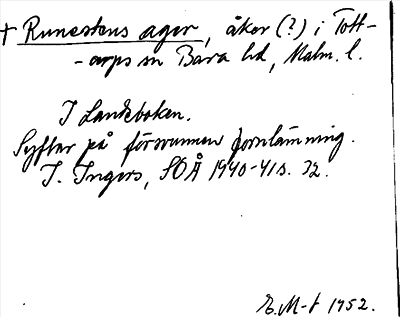 † Runestens ager, åker (?) i Tott-
-arps sn Bara hd, Malm. l.
I Landeboken.
Syftar på försvunnen fornlämning.
I. Ingers, SOÅ 1940-41 s. 32.
E.M-t 1952.